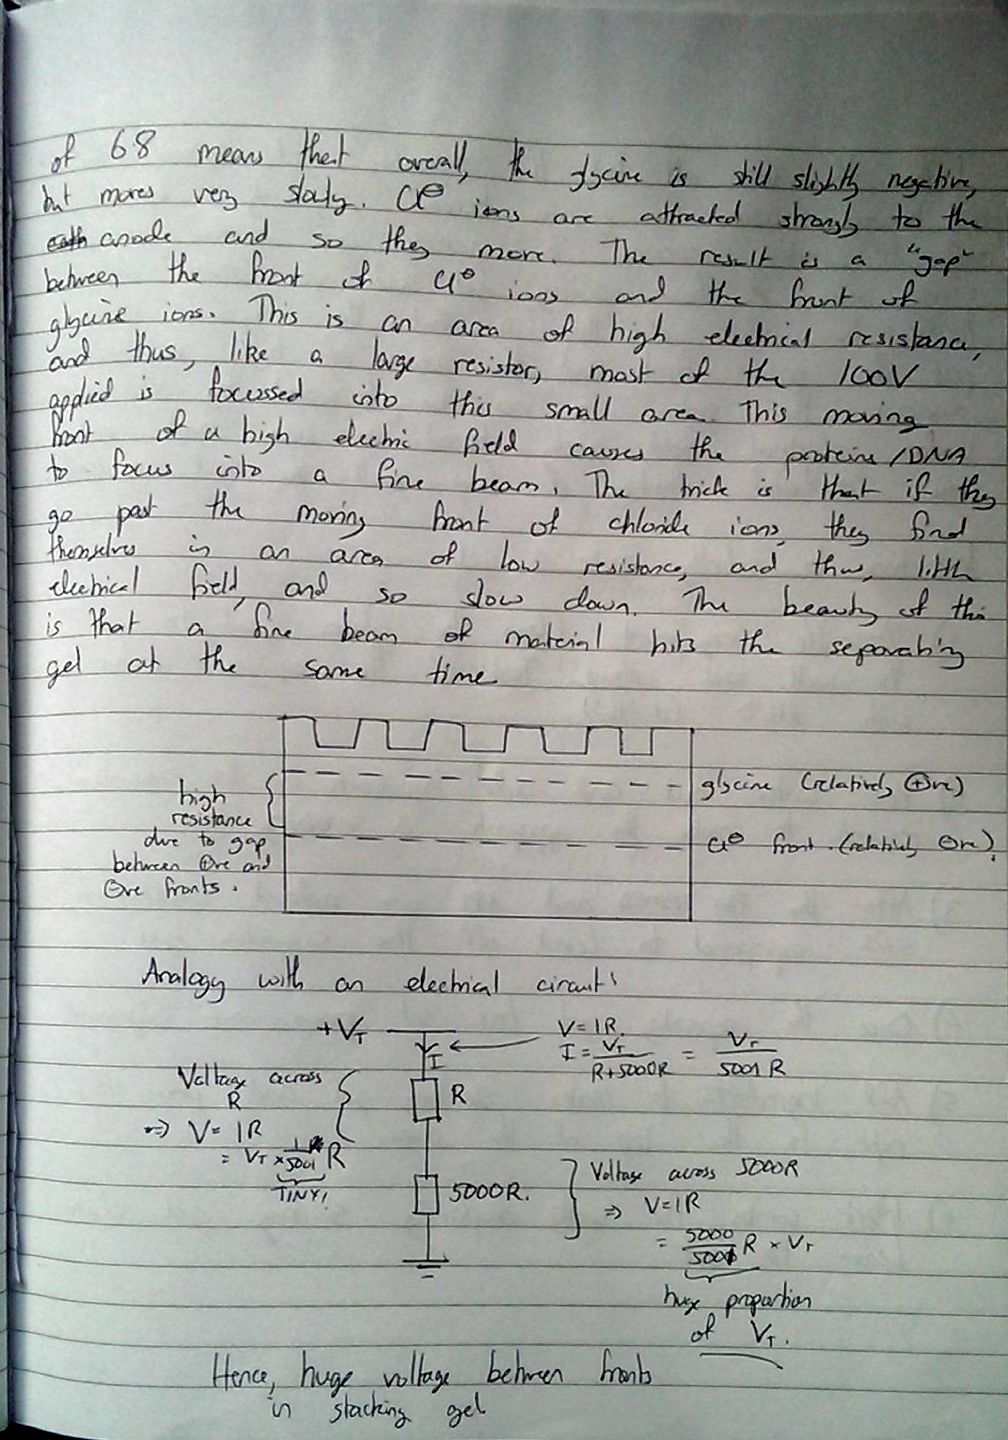 of 68 means that overall, the glycine is still slightly negative,
but moves very slowly. Cl⊖ ions are attracted strongly to the
anode and so they move. The result is a "gap"
between the front of Cl⊖ ions and the front of
glycine ions. This is an area of high electrical resistance,
and thus, like a large resistor, most of the 100V
applied is focussed into this small area. This moving
front of a high electric field causes the proteins/DNA
to focus into a fine beam. The trick is that if they
go past the moving front of chloride ions, they find
themselves in an area of low resistance, and thus, little
electrical field, and so slow down. The beauty of this
is that a fine beam of material hits the separating
gel at the same time
glycine (relatively ⊕ve)
high
resistance
due to gap
between ⊕ve and
⊖ve fronts.
Cl⊖ front. (relatively ⊖ve).
Analogy with an electrical circuit:
+V_T
I
V=IR.
I = V_T / (R+5000R) = V_T / 5001R
Voltage across
R
⇒ V= IR
= V_T × 1/5001 R
TINY!
R
5000R.
Voltage across 5000R
⇒ V=IR
= 5000/5001 R × V_T
huge proportion
of V_T.
Hence, huge voltage between fronts
in stacking gel